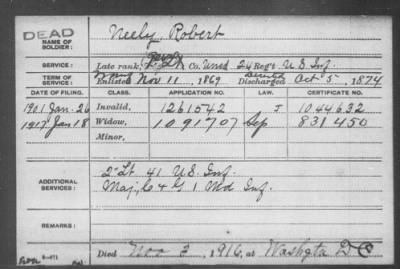 DEAD
NAME OF SOLDIER: Neely, Robert
SERVICE: Late rank, Co. Unas'd 24 Reg't U.S. Inf.
TERM OF SERVICE: Enlisted Nov 11, 1869 Discharged Oct 5, 1874
DATE OF FILING. CLASS. APPLICATION NO. CERTIFICATE NO.
1901 Jan. 26 Invalid, 1261542 1044632
1917 Jan 18 Widow, 1091707 831450
Minor,
ADDITIONAL SERVICES: 2" Lt 41 U.S. Inf.
Maj, 6 & G 1 Md Inf.
REMARKS:
Died Nov 2, 1916, at Washgtn D C